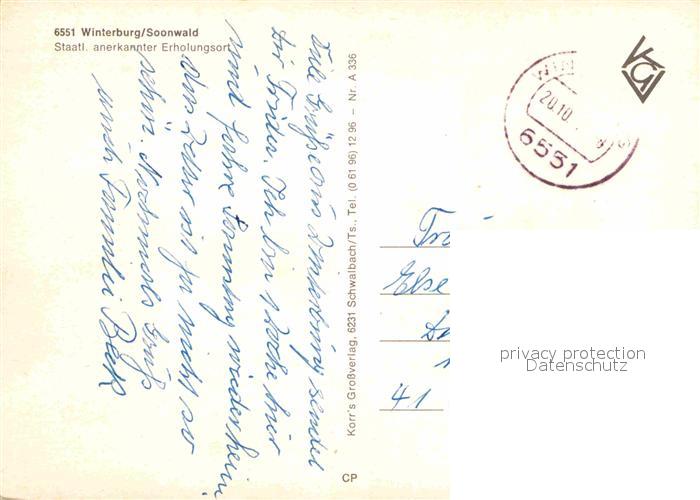 6551 Winterburg/Soonwald
Staatl. anerkannter Erholungsort
Viele Grüße aus Winterburg sendet
dir Frieda. Ich bin 1 Woche hier
und fahre Sonntag wieder heim
das Wetter ist ja nicht so
schön. Nochmals Gruß
auch Familie Beck
Korr's Großverlag, 6231 Schwalbach/Ts., Tel. (0 61 96) 12 96 – Nr. A 336
CP
KGV
WIN
20.10.
6551
Else
41
privacy protection
Datenschutz